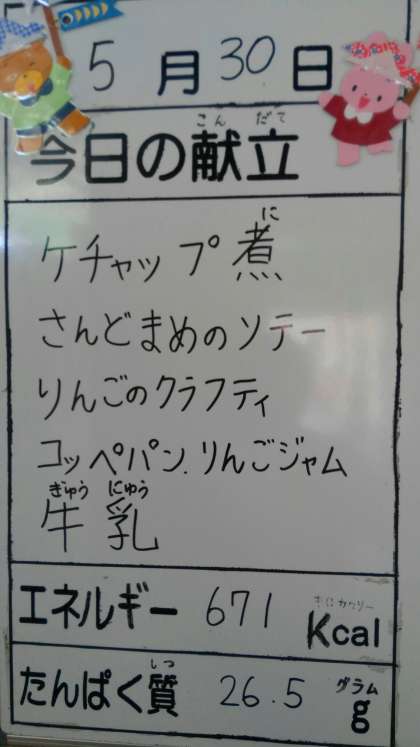 5月30日
こんだて
今日の献立
に
ケチャップ煮
さんどまめのソテー
りんごのクラフティ
コッペパン.りんごジャム
ぎゅう にゅう
牛乳
キロカロリー
エネルギー 671 Kcal
しつ グラム
たんぱく質 26.5 g